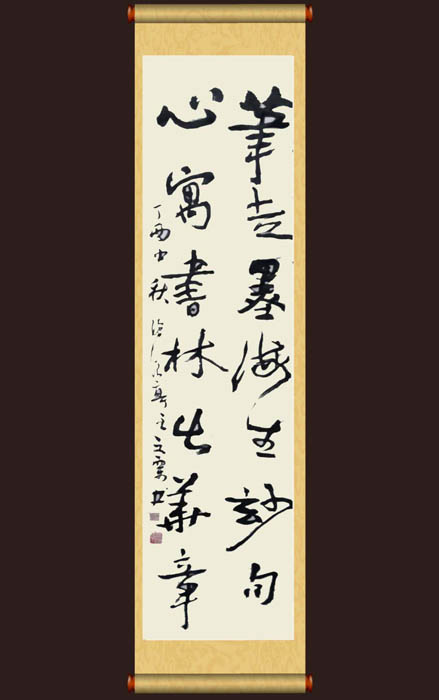 筆走墨海生妙句
心寓書林出華章
丁酉中秋